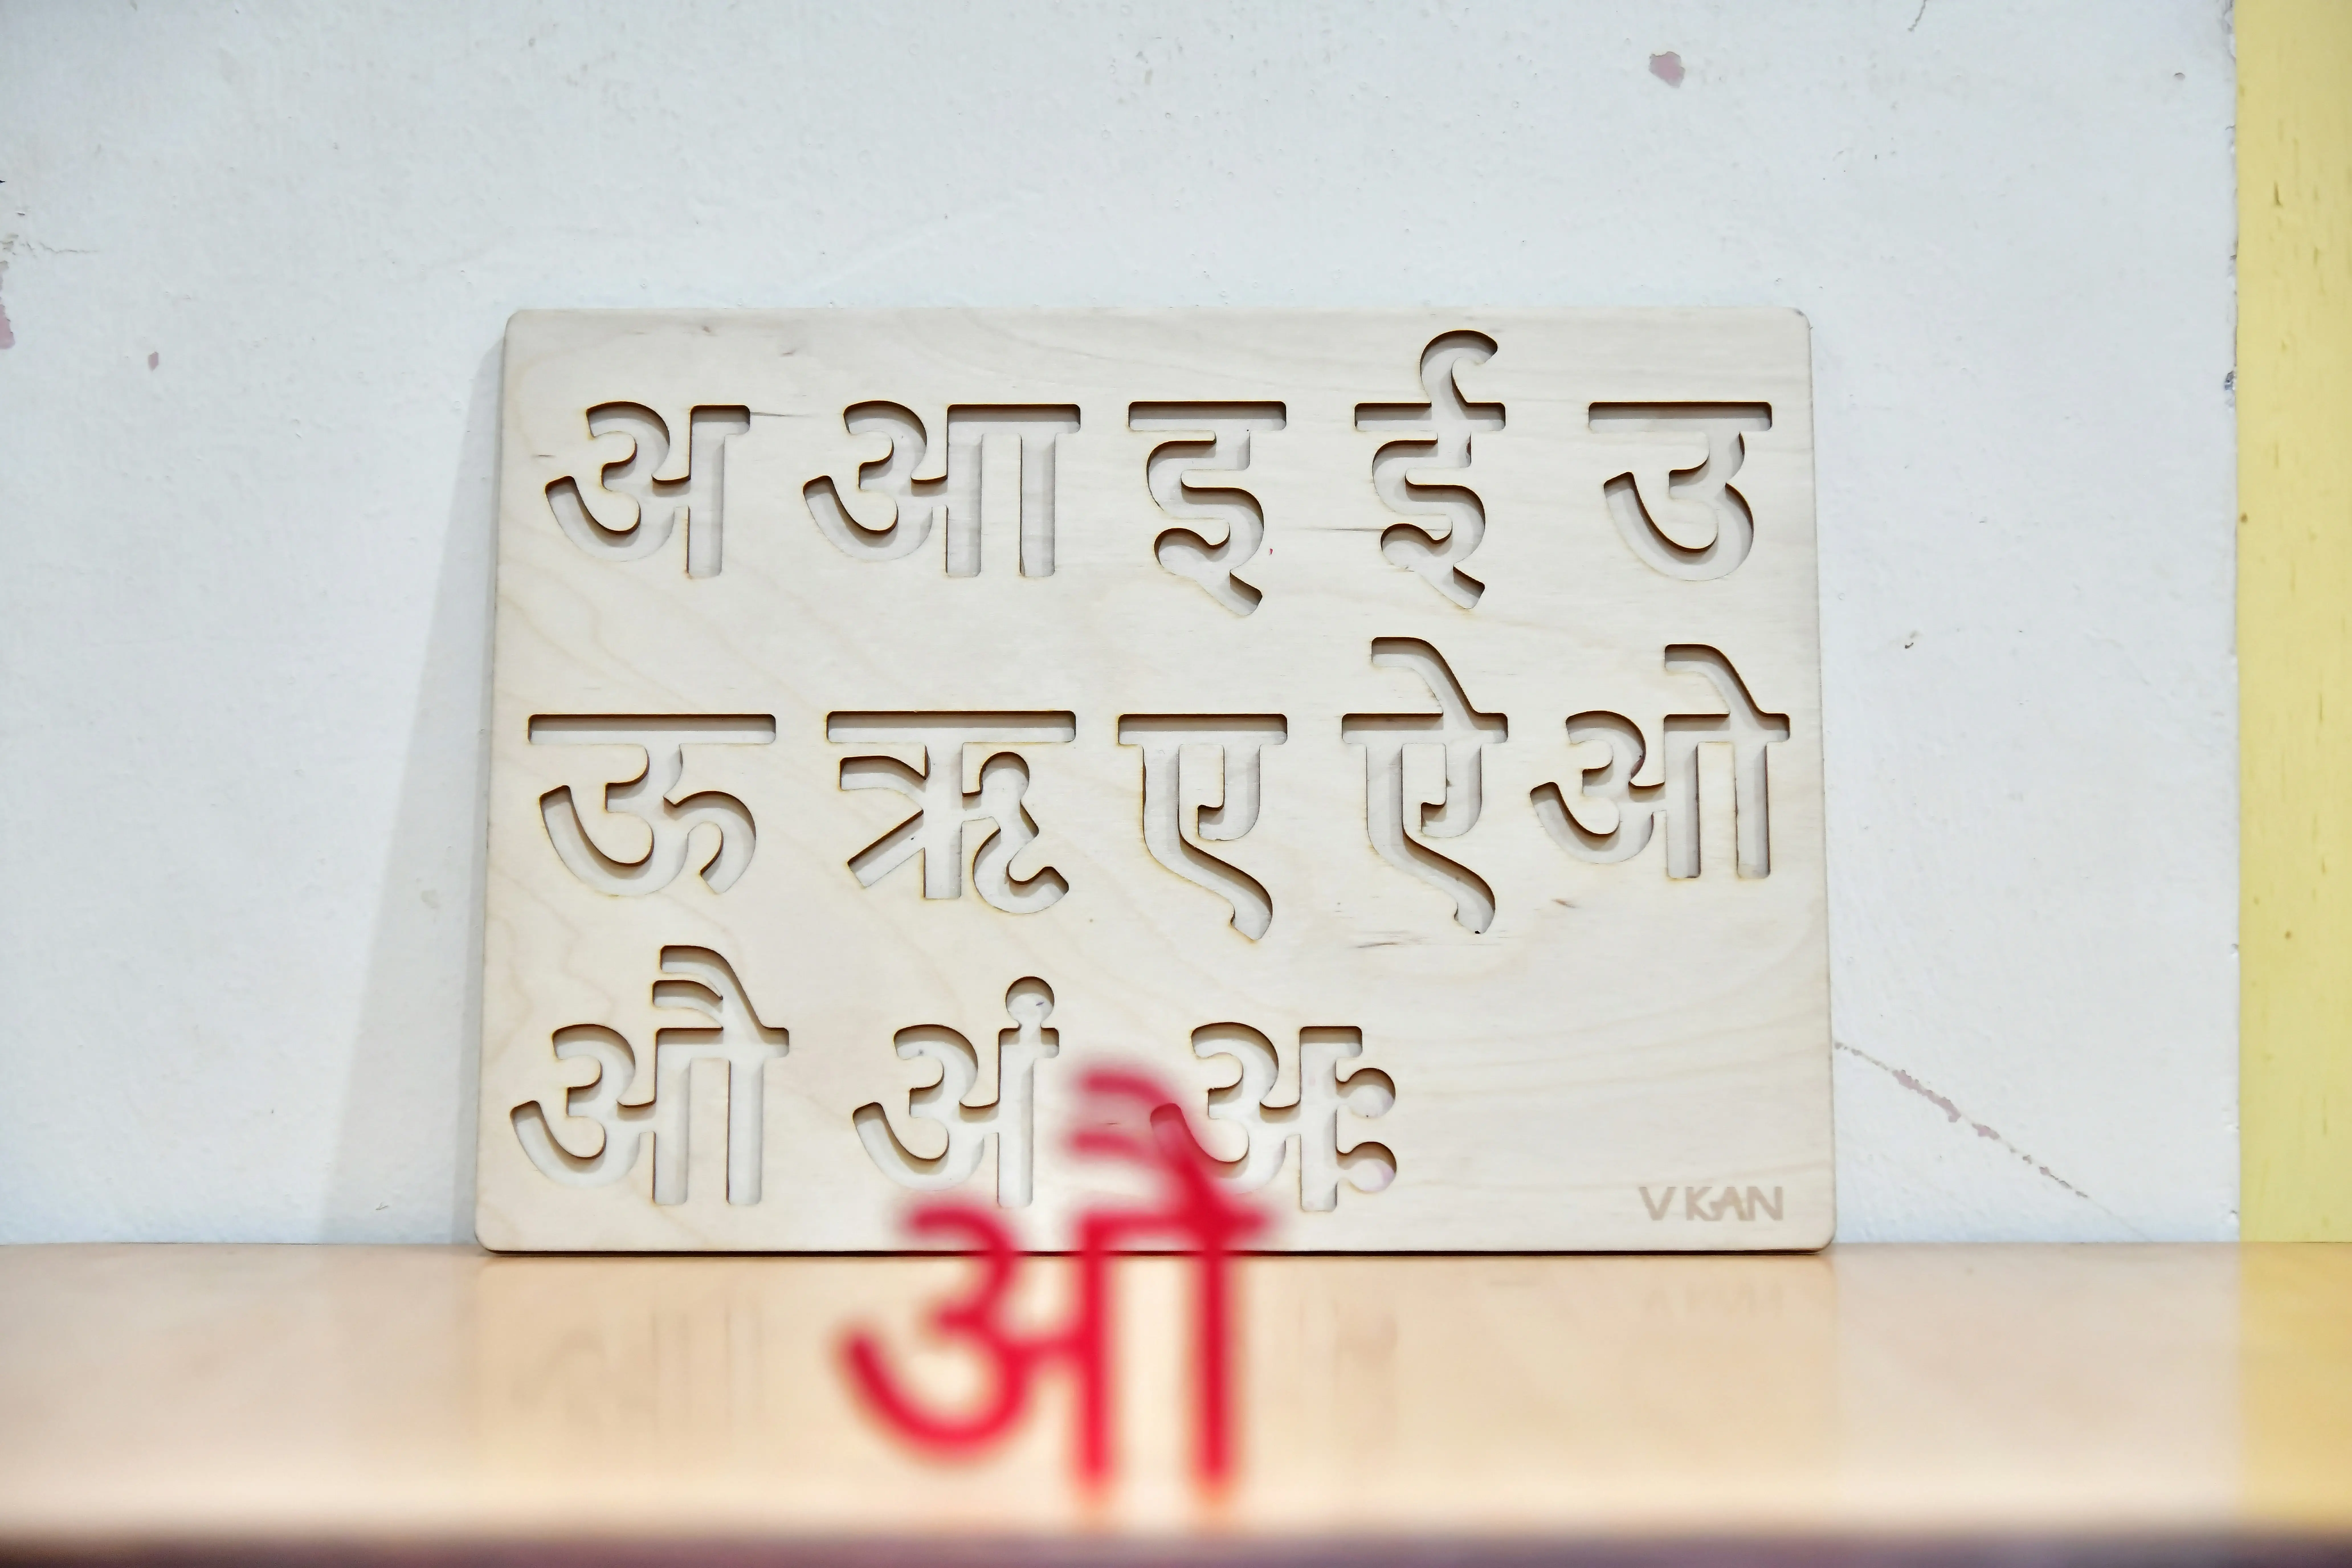 अ आ इ ई उ
ऊ ऋ ए ऐ ओ
औ अं अः
VKAN
औ